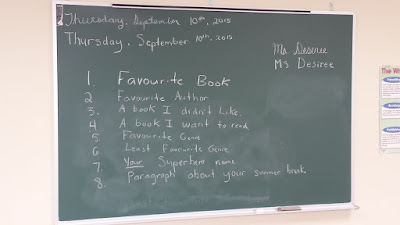 Thursday, September 10th, 2015
Thursday, September 10th, 2015
Ms Desiree
Ms Desiree
1. Favourite Book
2 Favourite Author
3. A book I didn't like.
4 A book I want to read
5 Favourite Genre
6. Least Favourite Genre
7. Your Superhero name
8. Paragraph about your summer break.
The Wr